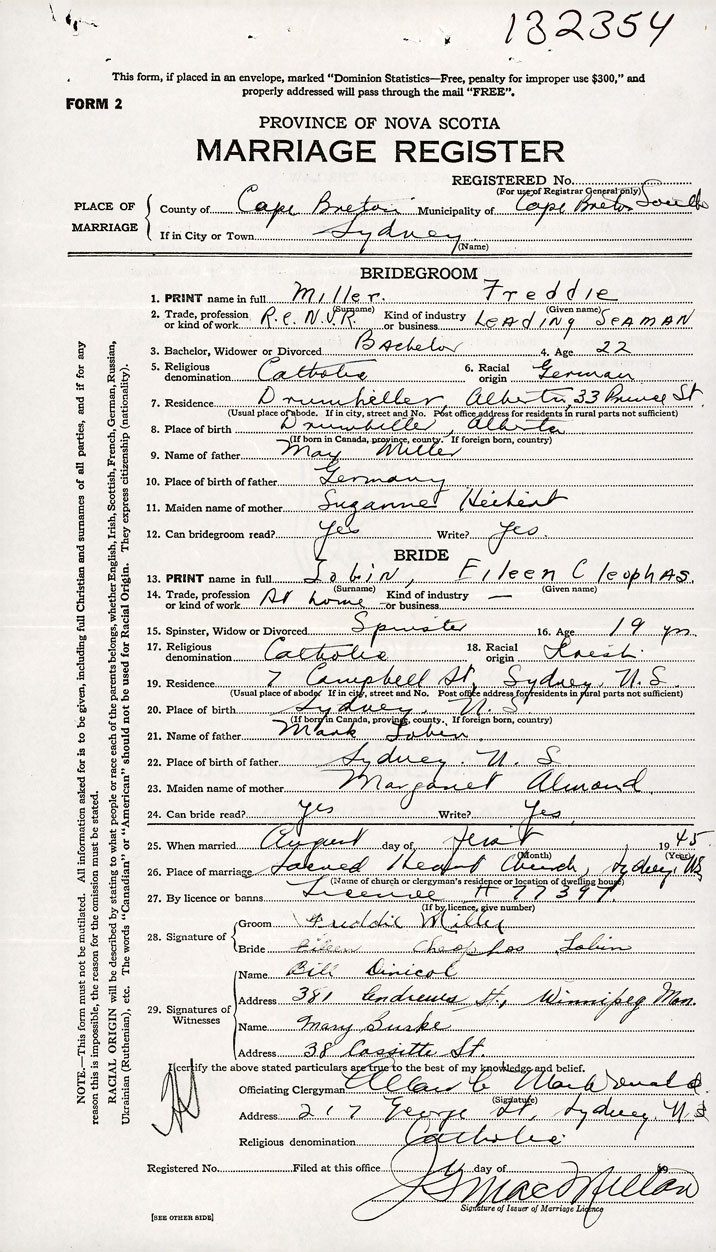 132354
This form, if placed in an envelope, marked “Dominion Statistics—Free, penalty for improper use $300,” and
properly addressed will pass through the mail “FREE”.
FORM 2
PROVINCE OF NOVA SCOTIA
MARRIAGE REGISTER
REGISTERED No.
(For use of Registrar General only)
PLACE OF MARRIAGE
County of Cape Breton Municipality of Cape Breton South
If in City or Town Sydney
(Name)
BRIDEGROOM
1. PRINT name in full Miller. Freddie
(Surname) (Given name)
2. Trade, profession or kind of work R.C.N.V.R. Kind of industry or business LEADING SEAMAN
3. Bachelor, Widower or Divorced Bachelor 4. Age 22
5. Religious denomination Catholic 6. Racial origin German
7. Residence Drumheller, Alberta, 33 Prince St.
(Usual place of abode. If in city, street and No. Post office address for residents in rural parts not sufficient)
8. Place of birth Drumheller, Alberta
(If born in Canada, province, county. If foreign born, country)
9. Name of father Max Miller
10. Place of birth of father Germany
11. Maiden name of mother Suzanne
12. Can bridegroom read? Yes Write? Yes.
BRIDE
13. PRINT name in full Tobin, Eileen Cleophas.
(Surname) (Given name)
14. Trade, profession or kind of work At home Kind of industry or business —
15. Spinster, Widow or Divorced Spinster 16. Age 19 yrs
17. Religious denomination Catholic 18. Racial origin Irish
19. Residence 7 Campbell St, Sydney. N.S.
(Usual place of abode. If in city, street and No. Post office address for residents in rural parts not sufficient)
20. Place of birth Sydney. N.S
(If born in Canada, province, county. If foreign born, country)
21. Name of father Mark Tobin.
22. Place of birth of father Sydney. N. S
23. Maiden name of mother Margaret Almond.
24. Can bride read? Yes Write? Yes.
25. When married August day of First 1945
(Month) (Year)
26. Place of marriage Sacred Heart Church, Sydney, NS
(Name of church or clergyman's residence or location of dwelling house)
27. By licence or banns Licence # 77397
(If by licence, give number)
28. Signature of
Groom Freddie Miller
Bride Eileen Cleophas Tobin
29. Signatures of Witnesses
Name Bill
Address 381 Andrews St., Winnipeg Man.
Name Mary Burke
Address 38 St.
I certify the above stated particulars are true to the best of my knowledge and belief.
Officiating Clergyman Allan C. MacDonald
(Signature)
Address 217 George St, Sydney. N.S
Religious denomination Catholic.
Registered No. Filed at this office day of 19
Signature of Issuer of Marriage Licence
[SEE OTHER SIDE]
NOTE.—This form must not be mutilated. All information asked for is to be given, including full Christian and surnames of all parties, and if for any
reason this is impossible, the reason for the omission must be stated.
RACIAL ORIGIN will be described by stating to what people or race each of the parents belongs, whether English, Irish, Scottish, French, German, Russian,
Ukrainian (Ruthenian), etc. The words “Canadian” or “American” should not be used for Racial Origin. They express citizenship (nationality).